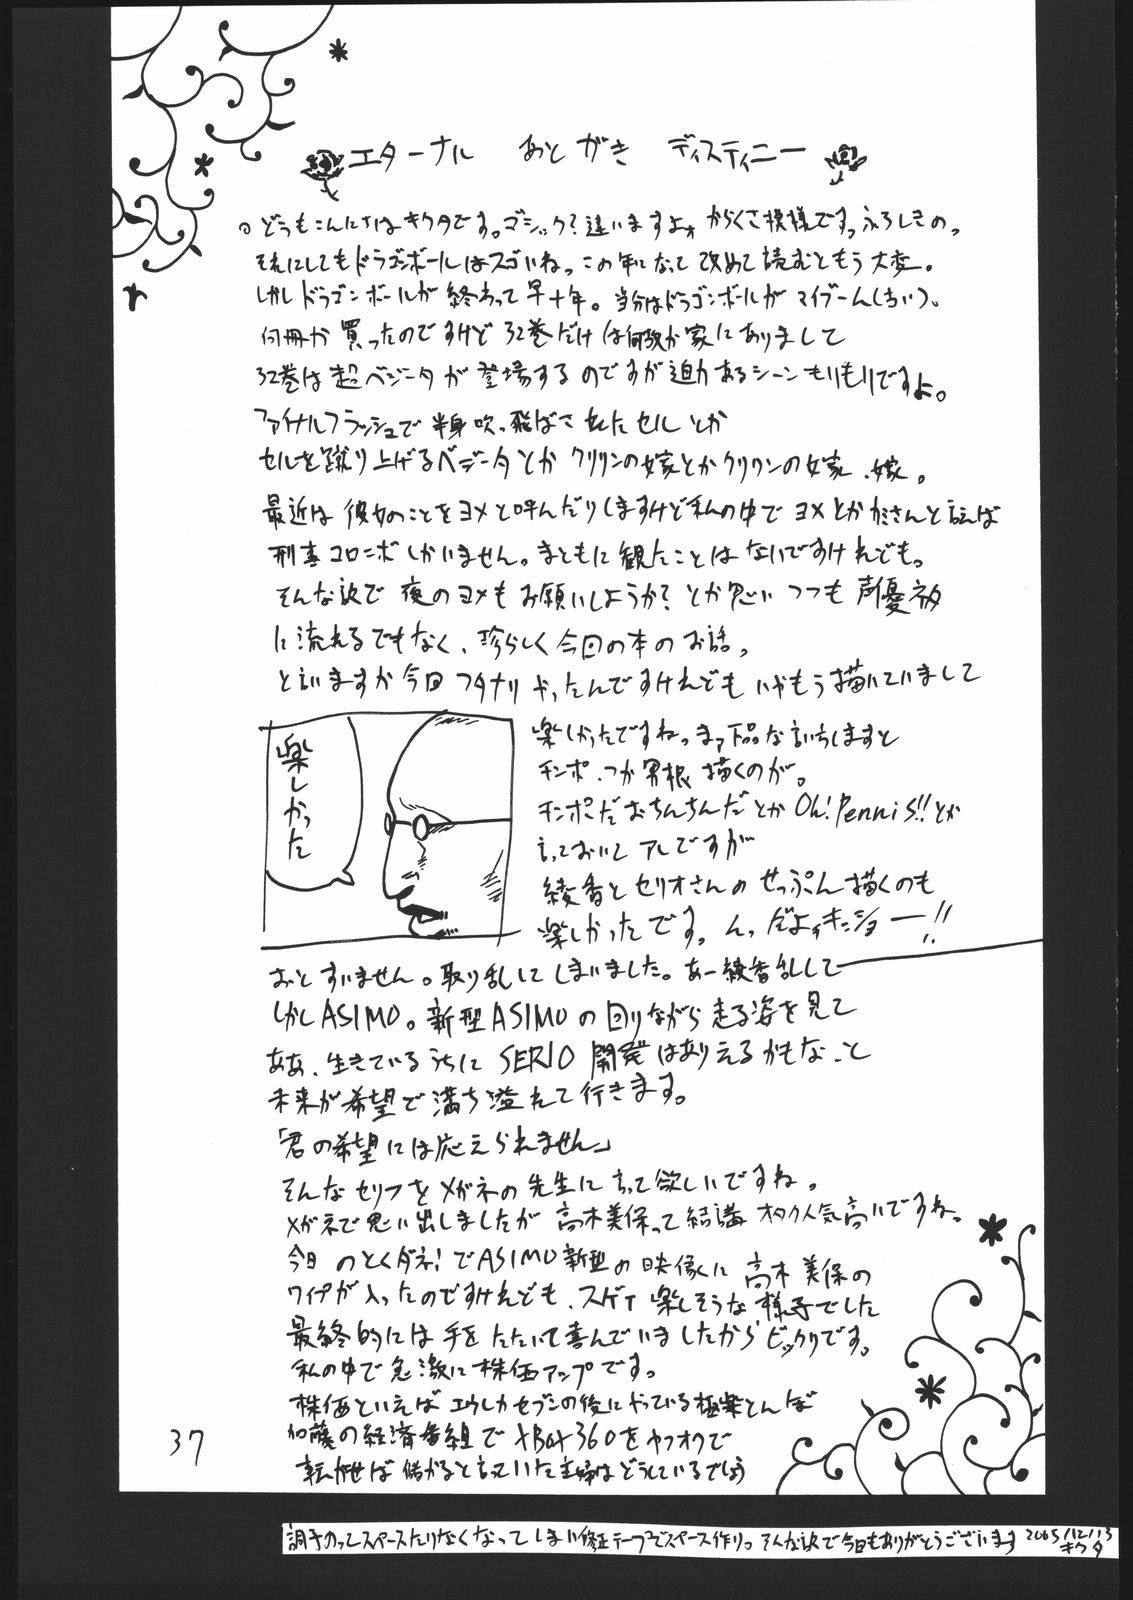 エターナル あとがき ディスティニー
どうもこんにちはキクタです。ゴシック?違いますよォからくさ模様です。ふろしきの。
それにしてもドラゴンボールはスゴいね。この年になって改めて読むともう大変。
しかしドラゴンボールが終わって早十年。当分はドラゴンボールがマイブーム(古い)。
何冊か買ったのですけど32巻だけは何故か家にありまして
32巻は超ベジータが登場するのですが迫力あるシーンもりもりですよ。
ファイナルフラッシュで半身吹っ飛ばされたセルとか
セルを蹴り上げるベジータとかクリリンの嫁とかクリリンの嫁、嫁。
最近は彼女のことをヨメと呼んだりしますけど私の中でヨメとかカミさんと言えば
刑事コロンボしかいません。まともに観たことはないですけれども。
そんな訳で夜のヨメもお願いしようか?とか思いつつも声優ネタ
に流れるでもなく、珍らしく今回の本のお話。
と言いますか今回フタナリやったんですけれどもいやもう描いていまして
楽しかったですね。まァ下品な言い方しますと
チンポ、つか男根描くのが。
チンポだおちんちんだとかOh!PenniS!!とか
言っておいてアレですが
綾香とセリオさんのせっぷん描くのも
楽しかったです。んっだよォキンショー!!
楽しかった
おとすいません。取り乱してしまいました。あー綾香乱して
しかしASIMO。新型ASIMOの回りながら走る姿を見て
ああ、生きているうちにSERIO開発はありえるかもなっと
未来が希望で満ち溢れて行きます。
「君の希望には応えられません」
そんなセリフをメガネの先生に言って欲しいですね。
メガネで思い出しましたが高木美保って結講オタク人気高いですね。
今日のとくダネ!でASIMO新型の映像に高木美保の
ワイプが入ったのですけれども、スゲイ楽しそうな様子でした
最終的には手をたたいて喜んでいましたからビックリです。
私の中で急激に株価アップです。
株価といえばエウレカセブンの後にやっている極楽とんぼ
加藤の経済番組でXBOX360をヤフオクで
転がせば儲かると言っていた主婦はどうしているでしょう
37
調子のってスペースたりなくなってしまい修正テープでスペース作り。そんな訳で今日もありがとうございます 2005/12/13
キクタ